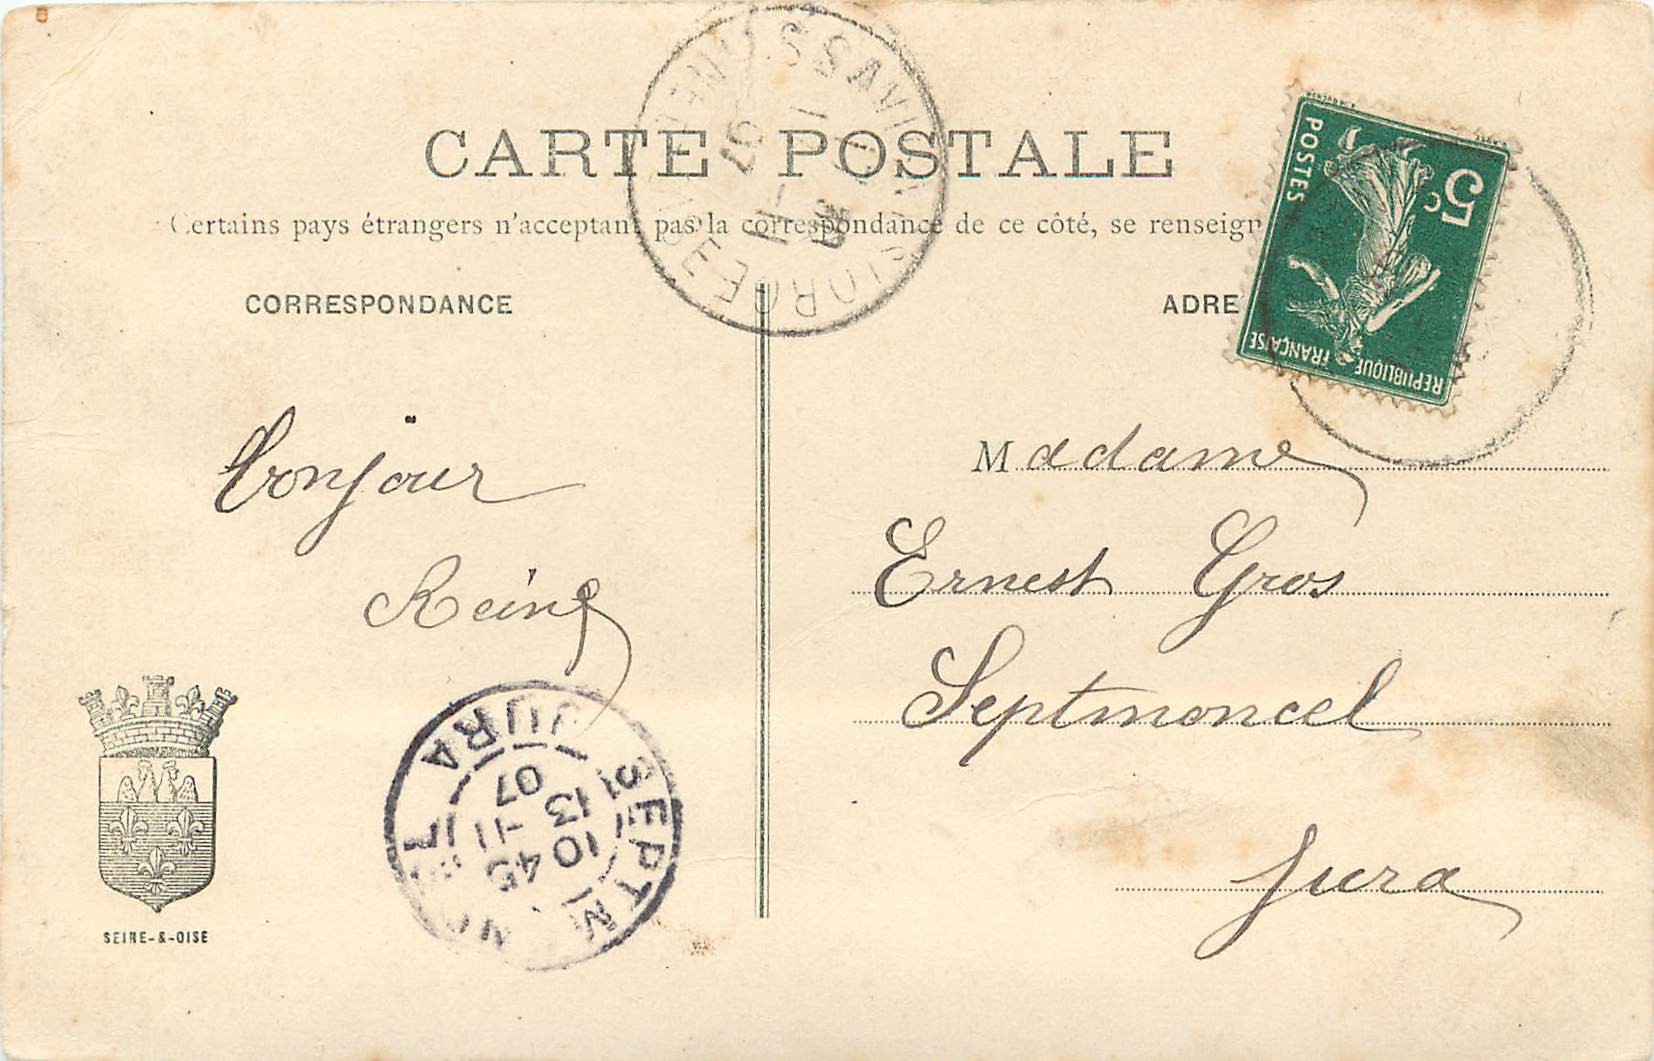 CARTE POSTALE
Certains pays étrangers n'acceptant pas la correspondance de ce côté, se renseign
CORRESPONDANCE
ADRE
5c
POSTES
REPUBLIQUE FRANÇAISE
bonjour
Reine
Madame
Ernest Gros
Septmoncel
Jura
JURA
10 45
13 -11
07
SEINE-&-OISE